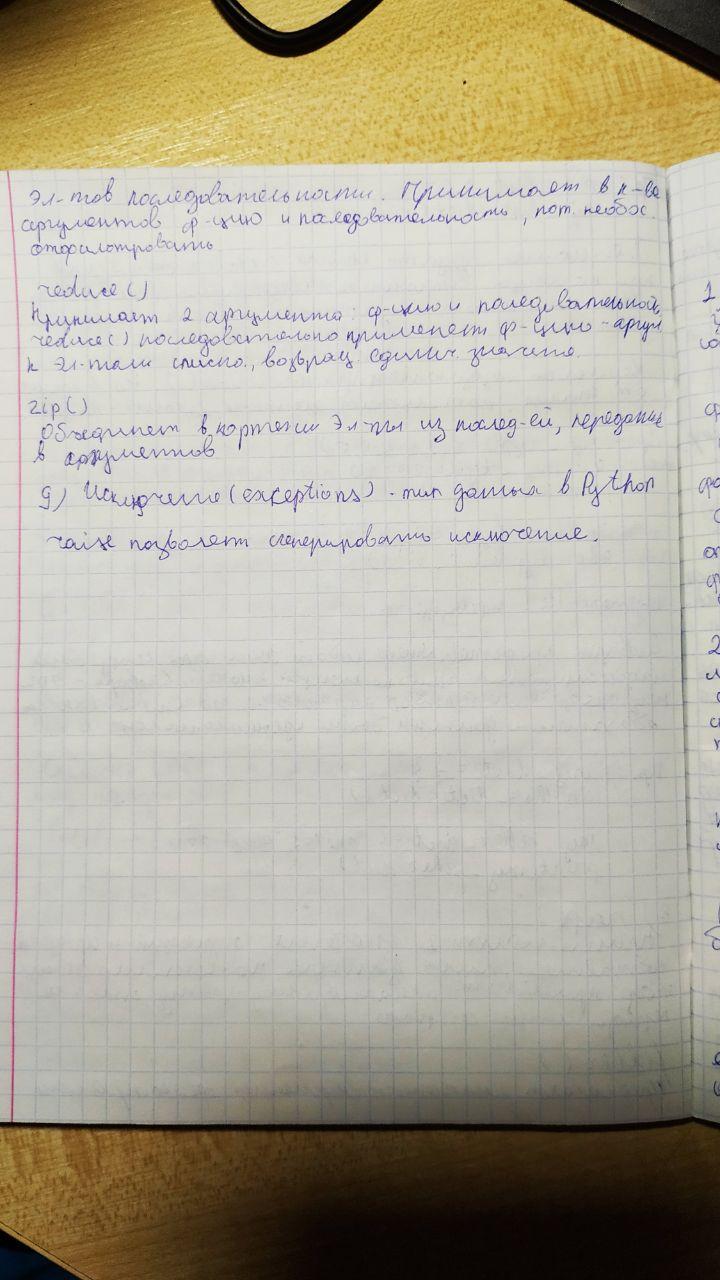 эл-тов последовательности. Принимает в к-ве
аргументов ф-цию и последовательность, кот. необх.
отфильтровать
reduce()
Принимает 2 аргумента: ф-цию и последовательность,
reduce() последовательно применяет ф-цию-аргум.
к эл-там списка, возвращ. единич. значение.
zip()
Объединяет в кортежи эл-ты из послед-ей, переданных
в аргументов
9) Исключение (exceptions) - тип данных в Python
raise позволяет сгенерировать исключение.